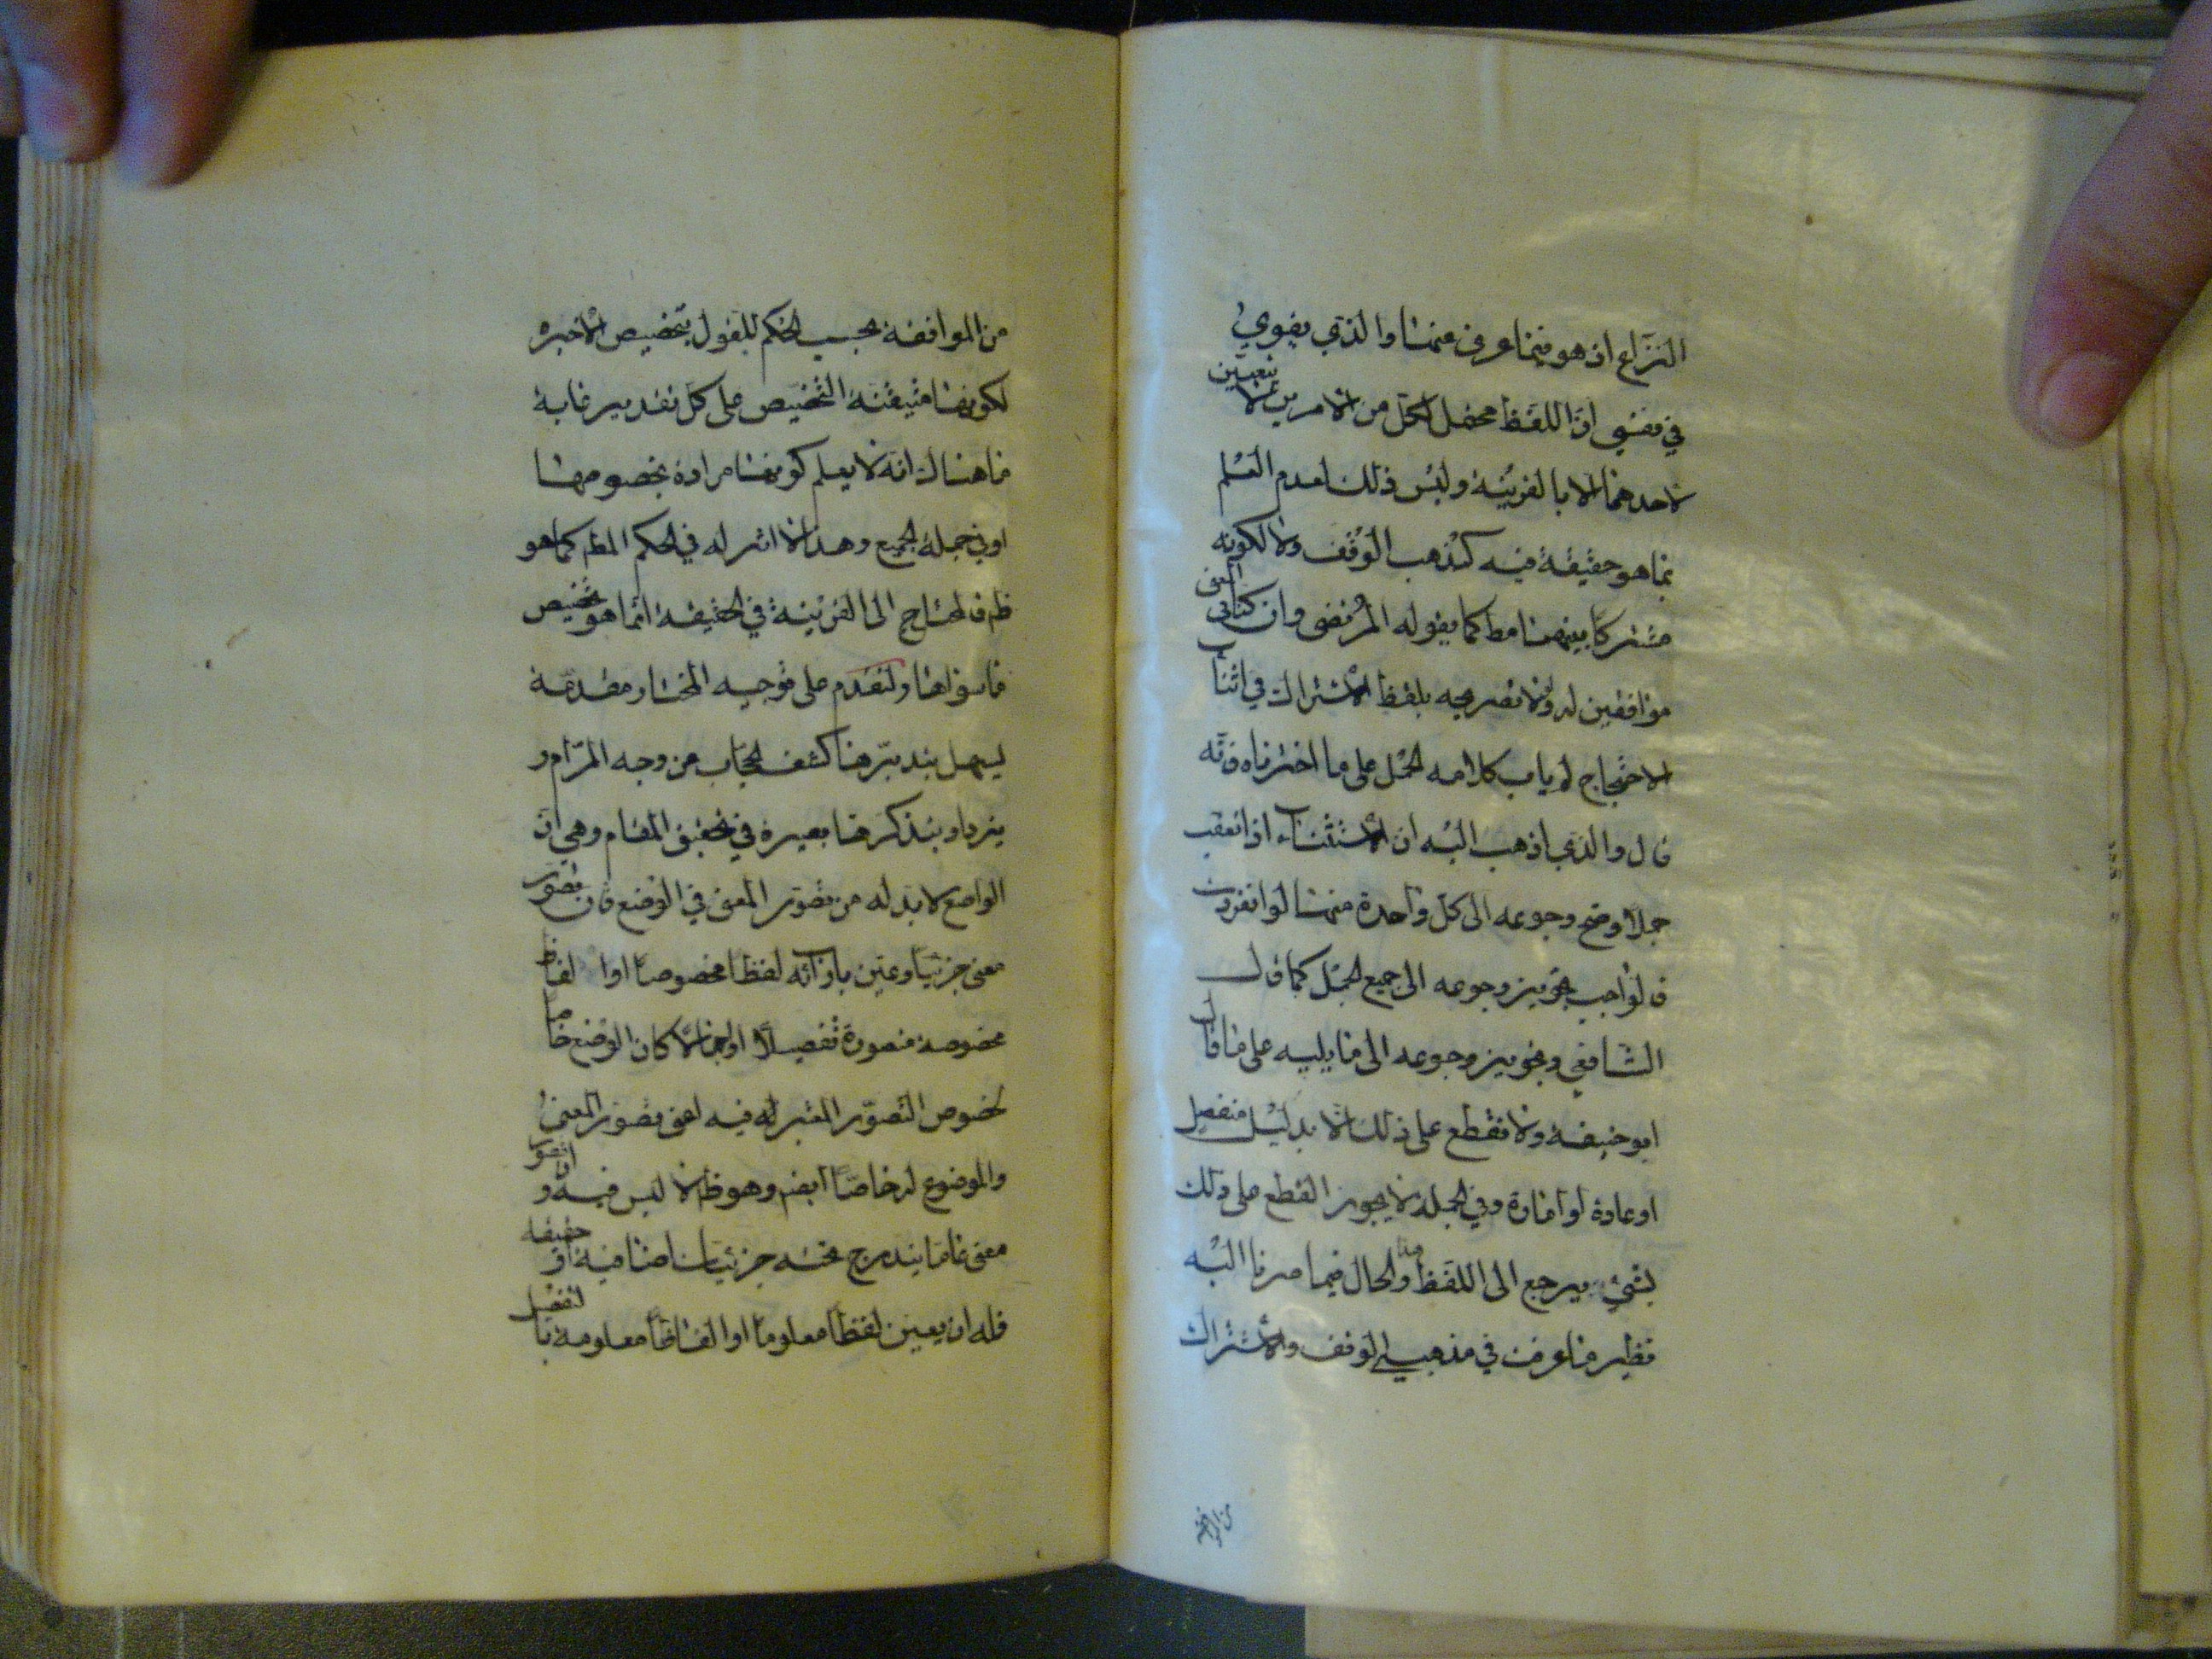 النزاع اذ هو فيما عرف منها والذي يقوي
في نفسي ان اللفظ محتمل لكل من الامرين لا يتعين
لاحدهما الا بالقرينة وليس ذلك لعدم العلم
بما هو حقيقة فيه كمذهب الوقف ولا لكونه
مشتركا بينهما مط كما يقوله المرتضى وان كنا في المعنى
موافقين له ولا تصريحه بلفظ الاشتراك في اثناء
الاحتجاج لم ياب كلامه الحمل على ما اخترناه فانه
قال والذي اذهب اليه ان الاستثناء اذا تعقب
جملا وصح رجوعه الى كل واحدة منها لو انفردت
فالواجب تجويز رجوعه الى جميع الجمل كما قال
الشافعي وتجويز رجوعه الى ما يليه على ما قال
ابو حنيفة ولا نقطع على ذلك الا بدليل منفصل
او عادة او امارة وفي الجملة لا يجوز القطع على ذلك
بشيء يرجع الى اللفظ هذا والحال فيما صرنا اليه
نظير ما عرفت في مذهبي الوقف والاشتراك
من الموافقة
من الموافقة بحسب الحكم للقول بتخصيص الاخيرة
لكونها متيقنة التخصيص على كل تقدير غاية
ما هناك انه لا يعلم كونها مرادة بخصوصها
او في جملة الجميع وهذا لا اثر له في الحكم المط كما هو
ظ فالمحتاج الى القرينة في الحقيقة انما هو تخصيص
ما سواها ولنقدم على توجيه المختار مقدمة
يسهل بتدبرها كشف الحجاب عن وجه المرام و
يزداد بتذكرها بصيرة في تحقيق المقام وهي ان
الواضع لا بد له من تصور المعنى في الوضع فان تصور
معنى جزئيا وعين بازائه لفظا مخصوصا او الفاظا
مخصوصة متصورة تفصيلا او اجمالا كان الوضع خاصا
لخصوص التصور المعتبر فيه اعني تصور المعنى
والموضوع له خاصا ايضم وهو ظ لا لبس فيه وان تصور
معنى عاما يندرج تحته جزئيات اضافية او حقيقية
فله ان يعين لفظا معلوما او الفاظا معلومة بالتفصيل